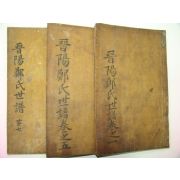 晋陽鄭氏世譜卷之一
晋陽鄭氏世譜卷之五
晋陽鄭氏世譜 卷七